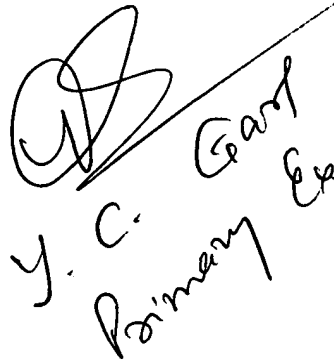 Y. C. Gart
Primary Ex